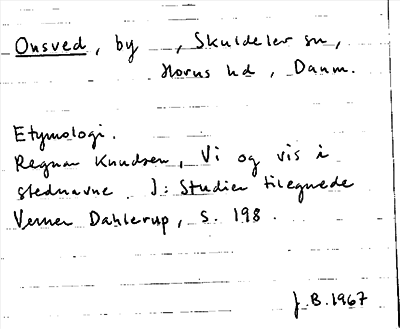 Onsved, by —, Skuldelev sn,
Horns hd, Danm.
Etymologi.
Regnar Knudsen, Vi og vis i
stednavne. I: Studier tilegnede
Verner Dahlerup, s. 198.
J.B. 1967